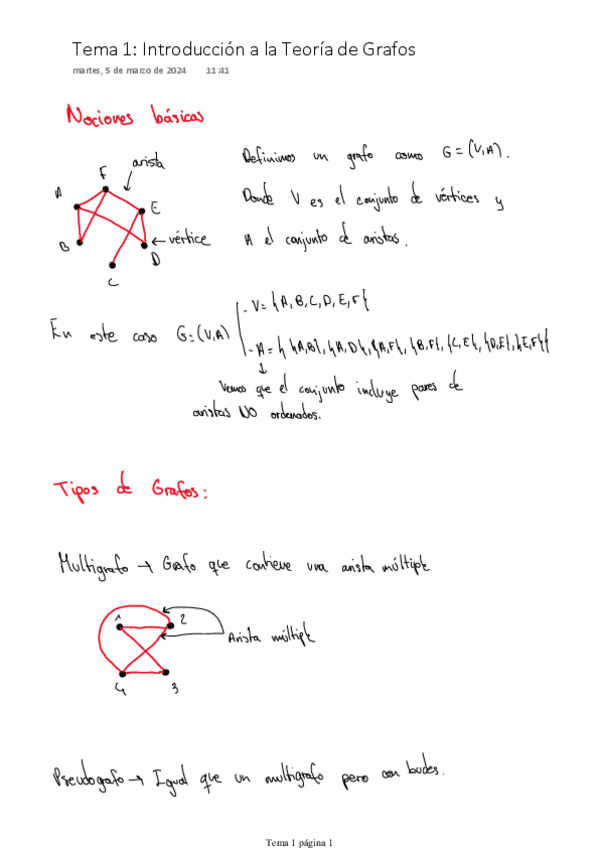 Tema 1: Introducción a la Teoría de Grafos
martes, 5 de marzo de 2024 11:41
Nociones básicas
arista
F
A
E
B
D
C
← vértice
Definimos un grafo como G = (V,A).
Donde V es el conjunto de vértices y
A el conjunto de aristas.
En este caso G=(V,A)
- V= {A, B, C, D, E, F}
- A = { {A,B}, {A,D}, {A,F}, {B,F}, {C,E}, {D,E}, {E,F}}
↓
Vemos que el conjunto incluye pares de
aristas NO ordenados.
Tipos de Grafos:
Multigrafo → Grafo que contiene una arista múltiple
1
2
Arista múltiple
4
3
Pseudografo → Igual que un multigrafo pero con bucles.
Tema 1 página 1